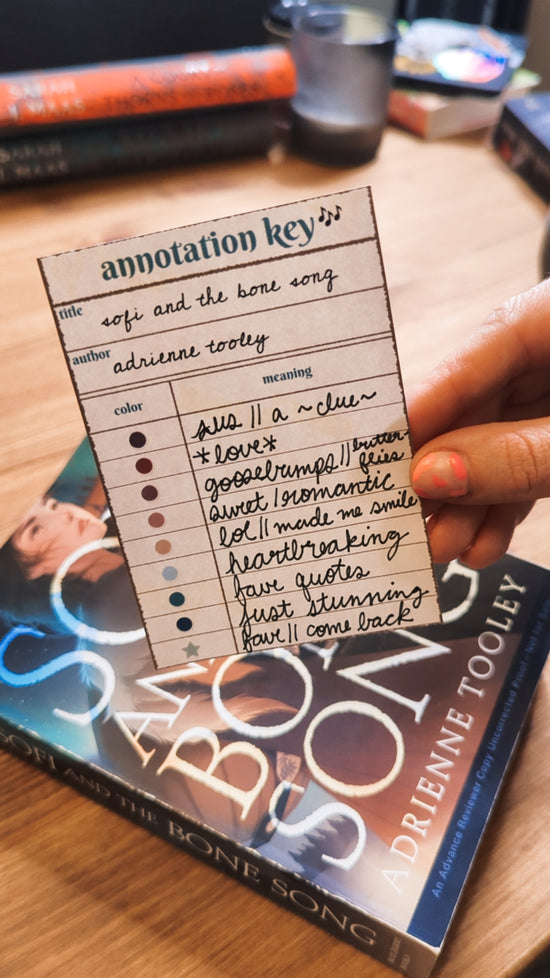 SARAH
J. MAAS
THORNS
SARAH
J. MAAS
annotation key
title sofi and the bone song
author adrienne tooley
color meaning
sus || a ~clue~
*love*
goosebumps || butter-
flies
sweet / romantic
lol || made me smile
heartbreaking
fave quotes
just stunning
fave || come back
SO
AN
BO
SONG
ADRIENNE TOOLEY
An Advance Reviewer Copy Uncorrected Proof—Not for
SOFI AND THE BONE SONG